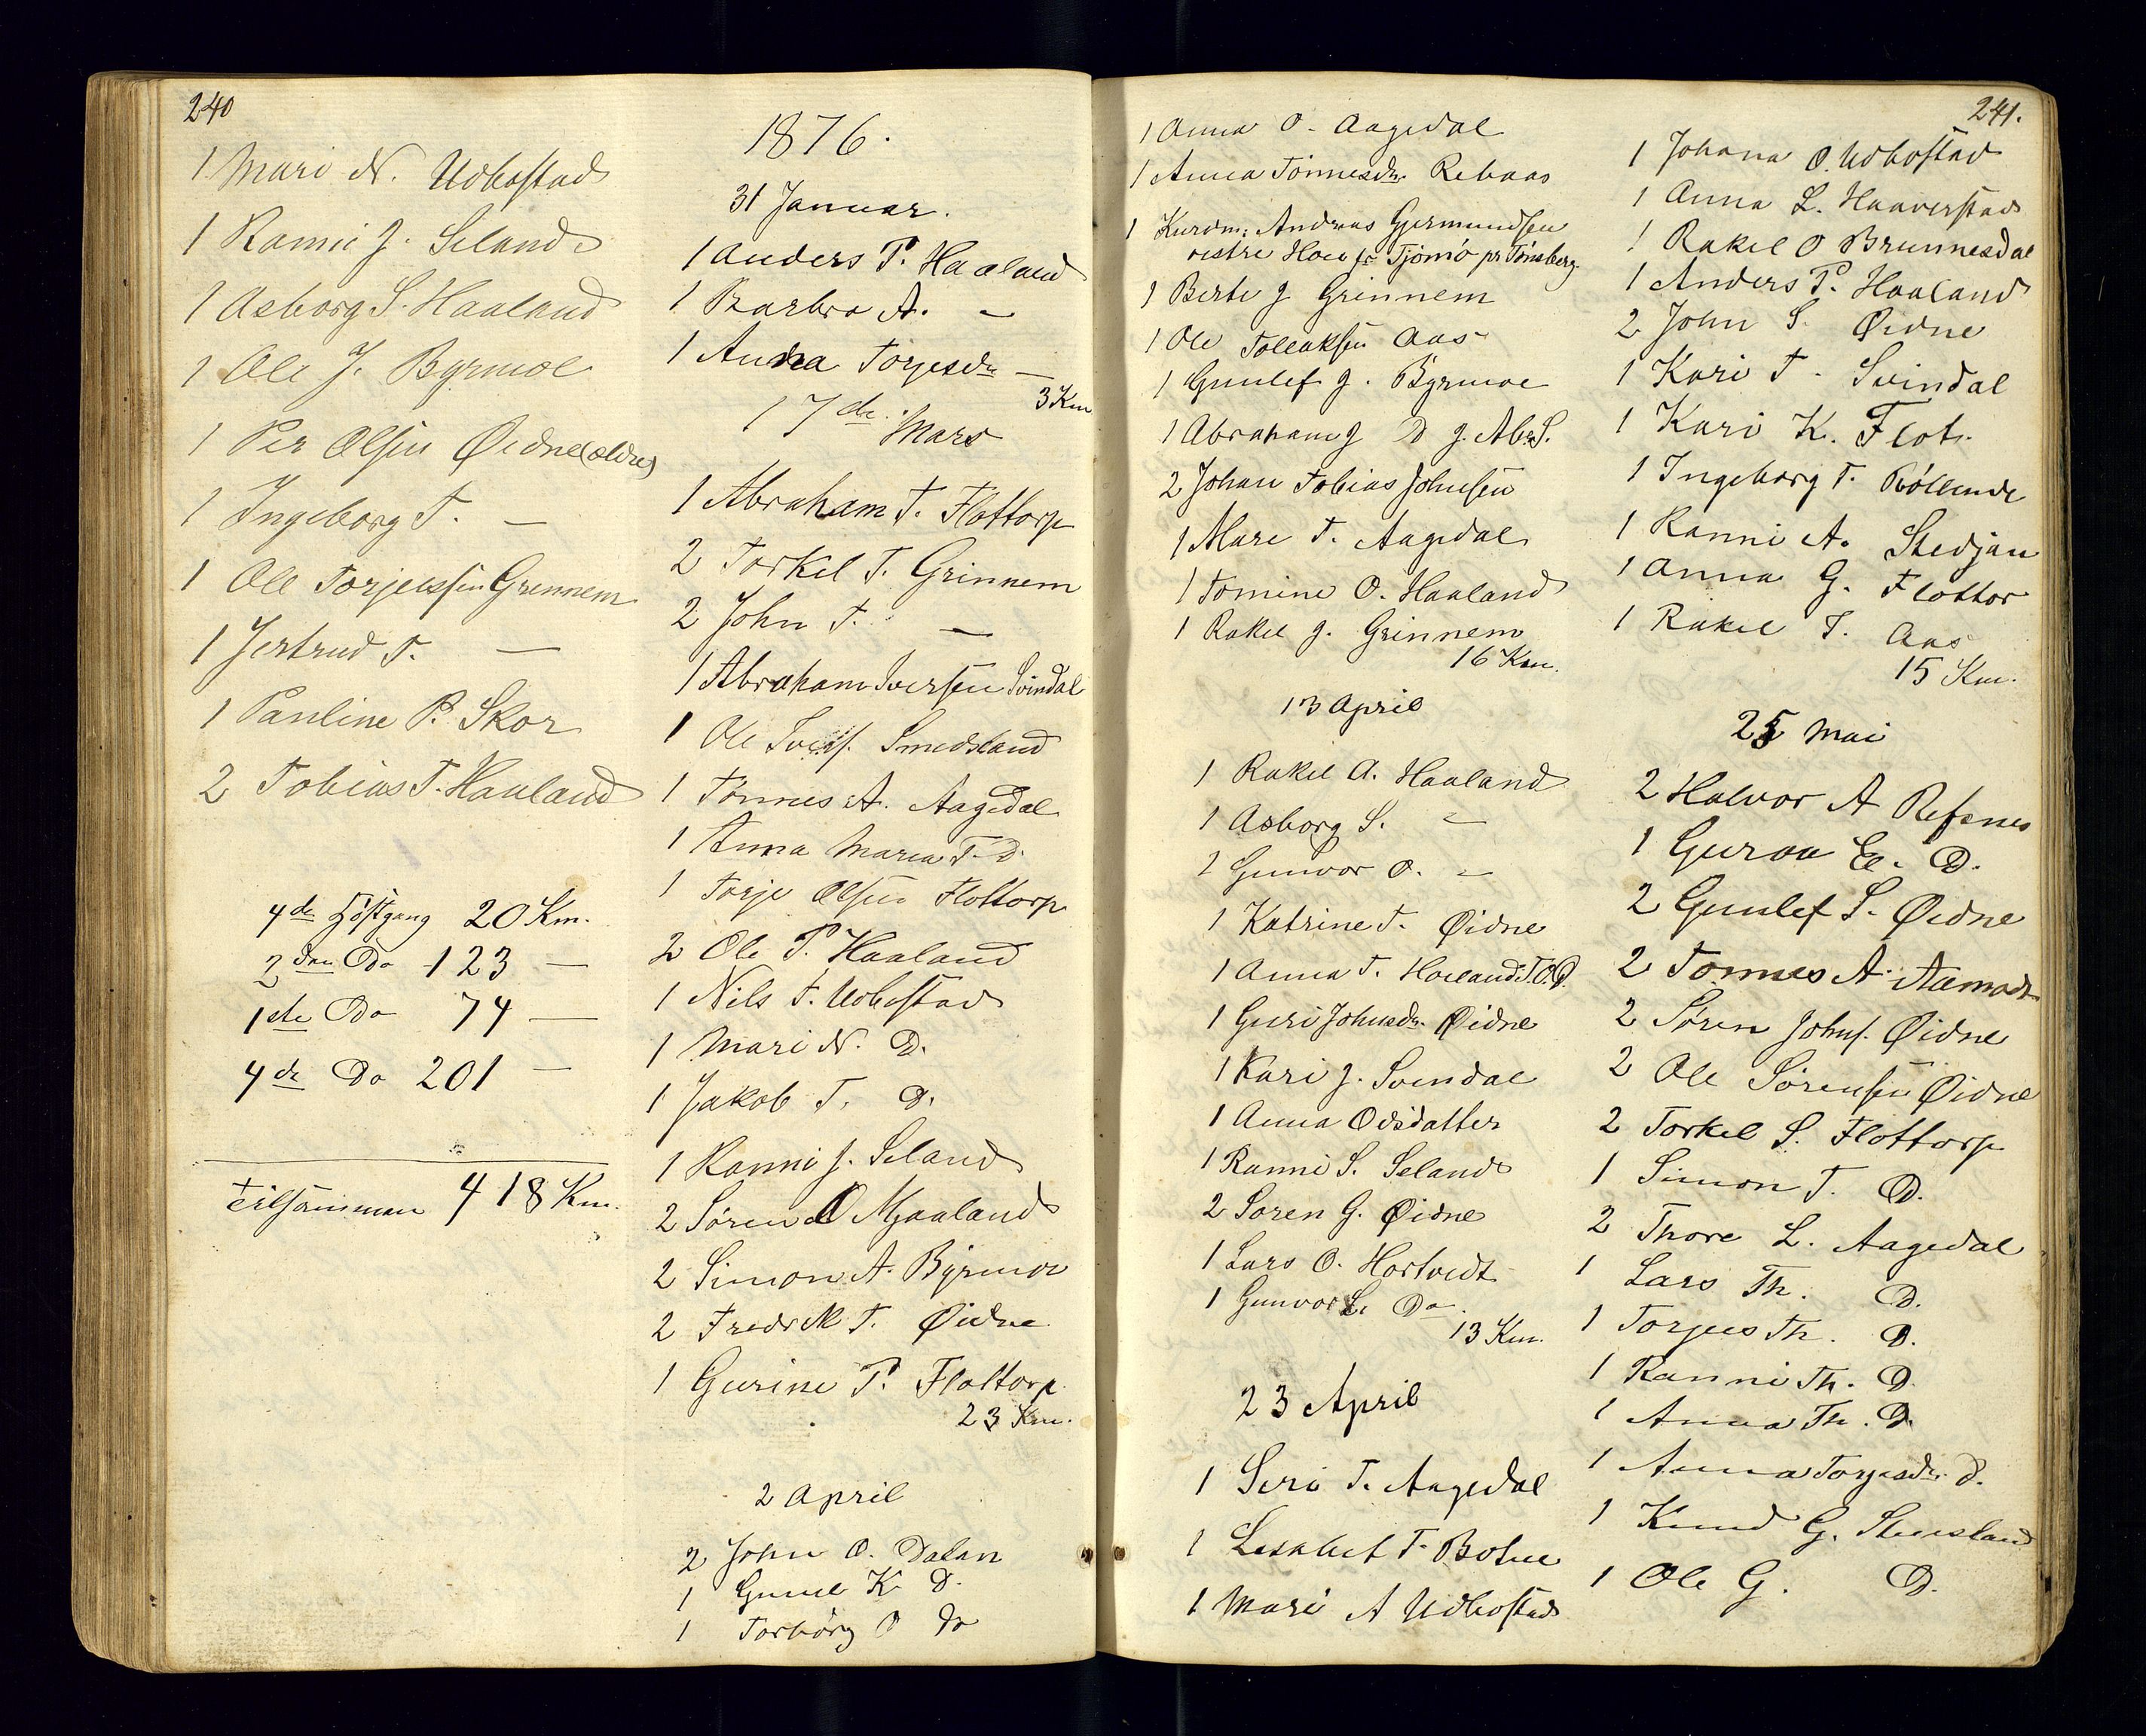 240
1 Mari N. Udbøstad
1 Ranni J. Seland
1 Asborg S. Haaland
1 Ole J. Byrmoe
1 Per Olsen Øidne (ældre)
1 Ingeborg T. —
1 Ole Torjussen Grennem
1 Jertrud T. —
1 Pauline P. Skor
2 Tobias T. Haaland
4de Höstgang 20 Km.
2den Do 123 —
1ste Do 74 —
4de Do 201 —
Tilsammen 418 Km.
1876.
31 Januar.
1 Anders P. Haaland
1 Barbro A. —
1 Anna Torjesdr —
3 Km
17de Mars
1 Abraham T. Flottorp
2 Torkel T. Grinnem
2 John T. —
1 Abraham Iversen Svindal
1 Ole Smedsland
1 Tönnes A. Aagedal
1 Anna Maria T. D.
1 Torje Olsen Flottorp
2 Ole P. Haaland
1 Nils T. Udbøstad
1 Mari N. D.
1 Jakob T. D.
1 Ranni J. Seland
2 Sören O Mjaaland
2 Simon A. Byrmoe
2 Fredrik T. Øidne
1 Gurine P. Flottorp
23 Km.
2 April
2 John O. Dalan
1 Gunil K. D.
1 Torbörg O Do
241.
1 Anna O. Aagedal
1 Anna Tönnesdr. Rebaas
1 Kurdm: Andreas Gjermundsen
vestre Hoei fr Tjömö pr Tönsberg.
1 Berte J Grinnem
1 Ole Tollaksen Aas
1 Gunlef J. Byrmoe
1 Abraham J D J. Abr. S.
2 Johan Tobias Johnsen
1 Mari T. Aagedal
1 Tomine O. Haaland
1 Rakel J. Grinnem
16 Km.
13 April
1 Rakel A. Haaland
1 Asborg S. —
1 Gunvor O. —
1 Katrine T. Øidne
1 Anna T. Haaland T.O.D.
1 Guri Johnsdr. Øidne
1 Kari J. Svendal
1 Anna Odsdatter
1 Ranni S. Seland
2 Soren G. Øidne
1 Lars O. Hortvedt
1 Gunvor L. Do
13 Km.
23 April
1 Siri T. Aagedal
1 Lisabet T. Botne
1 Mari A Udbøstad
1 Johana O. Udbøstad
1 Anna L. Haaverstad
1 Rakel O Brunnesdal
1 Anders P. Haaland
2 John S. Øidne
1 Kari T. Svindal
1 Kari K. Flot.
1 Ingeborg T. Röllend
1 Ranni A. Stedjan
1 Anna G. Flottor
1 Rakel T. Aas
15 Km.
25 Mai
2 Halvor A Refsnes
1 Guroa E. D.
2 Gunlef S. Øidne
2 Tönnes A. Aamodt
2 Sören Johns. Øidne
2 Ole Sörensen Øidne
2 Torkel S. Flottorp
1 Simon T. D.
2 Thore L. Aagedal
1 Lars Th. D.
1 Torjus Th. D.
1 Ranni Th. D.
1 Anna Th. D.
1 Anna Torjusdr. D.
1 Knud G. Stensland
1 Ole G. D.